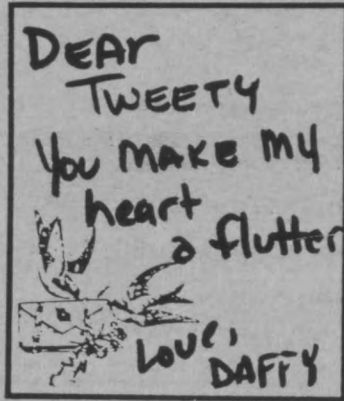 DEAr
TWEETY
You MAKE MY
heart
a flutter
Love,
DAFFY